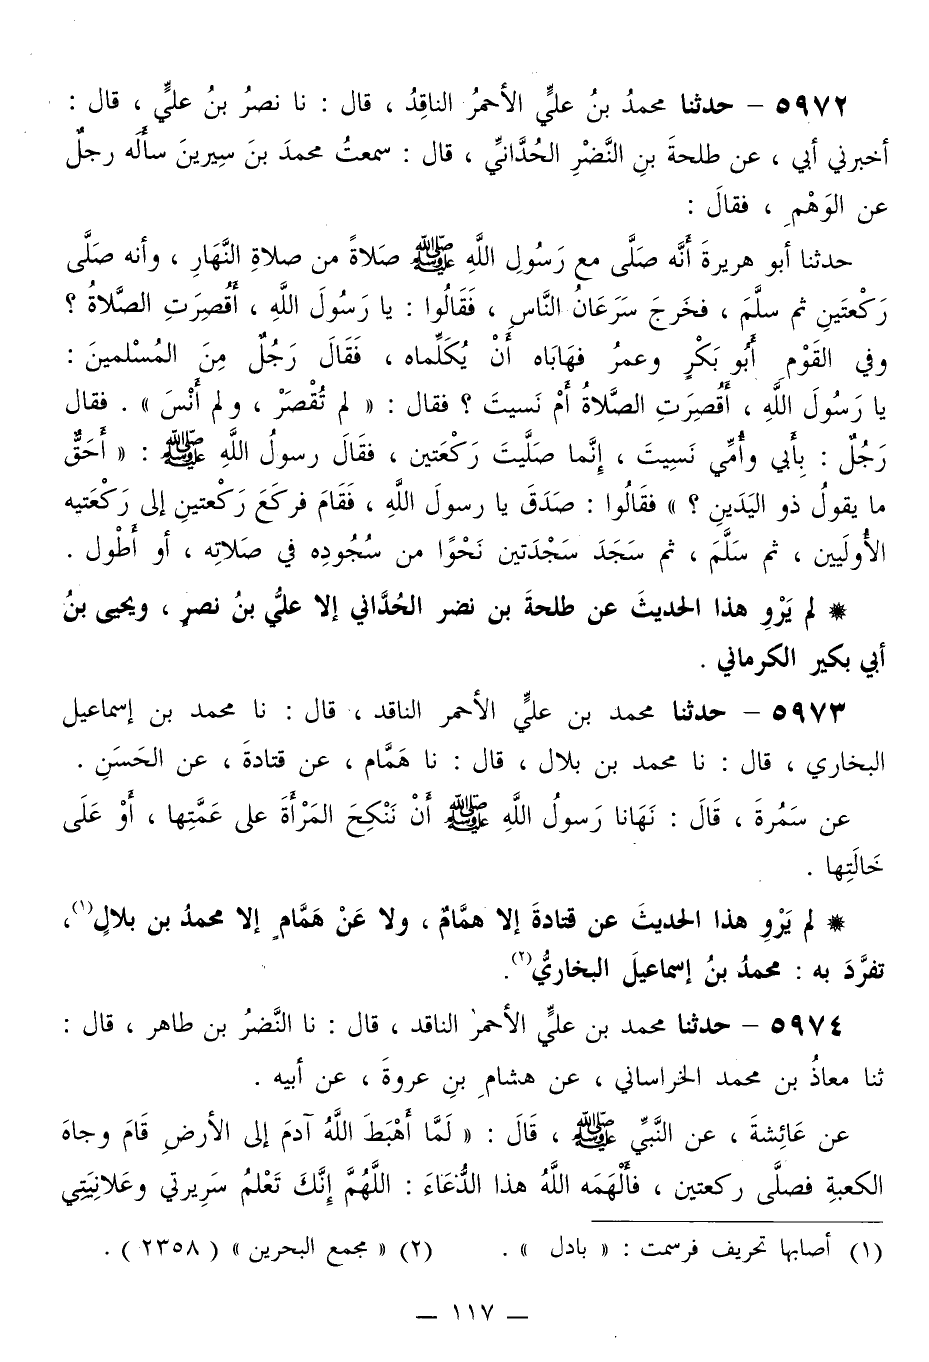 ٥٩٧٢ – حدثنا محمدُ بنُ عليٍّ الأحمرُ الناقِدُ ، قال : نا نصرُ بنُ عليٍّ ، قال :
أخبرني أبي ، عن طلحةَ بنِ النَّضْرِ الحُدَّانيِّ ، قال : سمعتُ محمدَ بنَ سِيرينَ سأَله رجلٌ
عن الوَهْمِ ، فقالَ :
حدثنا أبو هريرةَ أنَّه صَلَّى مع رَسُولِ اللَّهِ ﷺ صلاةً من صلاةِ النَّهَارِ ، وأنه صَلَّى
رَكْعتَينِ ثم سلَّمَ ، فخرجَ سَرَعَانُ النَّاسِ ، فَقَالُوا : يا رَسُولَ اللَّهِ ، أَقُصِرَتِ الصَّلاةُ ؟
وفي القَوْمِ أَبُو بَكْرٍ وعمرُ فهَابَاه أَنْ يُكَلِّماه ، فَقَالَ رَجُلٌ مِنَ المُسْلمينَ :
يا رَسُولَ اللَّهِ ، أَقُصِرَتِ الصَّلاةُ أمْ نَسيتَ ؟ فقال : « لم تُقْصَرْ ، ولم أَنْسَ » . فقال
رَجُلٌ : بِأَبي وأُمِّي نَسِيتَ ، إِنَّما صلَّيتَ رَكْعَتَين ، فقَالَ رسولُ اللَّهِ ﷺ : « أَحَقٌّ
ما يقولُ ذو اليَدَينِ ؟ » فقَالُوا : صَدَقَ يا رسولَ اللَّهِ ، فَقَامَ فركَعَ رَكْعتينِ إلى رَكْعَتيه
الأُولَيين ، ثم سَلَّمَ ، ثم سَجَدَ سَجْدَتين نَحْوًا من سُجُودِه في صَلاتِه ، أو أَطْول .
* لم يَرْوِ هذا الحديثَ عن طلحةَ بن نضر الحُدَّاني إلا عليُّ بنُ نصرٍ ، ويحيى بنُ
أبي بكير الكرماني .
٥٩٧٣ – حدثنا محمد بن عليٍّ الأحمر الناقد ، قال : نا محمد بن إسماعيل
البخاري ، قال : نا محمد بن بلال ، قال : نا هَمَّام ، عن قتادةَ ، عن الحَسَنِ .
عن سَمُرةَ ، قَالَ : نَهَانا رَسولُ اللَّهِ ﷺ أَنْ نَنْكِحَ المَرْأَةَ على عَمَّتِها ، أَوْ عَلَى
خَالَتِها .
* لم يَرْوِ هذا الحديثَ عن قتادةَ إلا همَّامٌ ، ولا عَنْ هَمَّامٍ إلا محمدُ بن بلالٍ(١)،
تفرَّدَ به : محمدُ بنُ إسماعيلَ البخاريُّ(٢).
٥٩٧٤ – حدثنا محمد بن عليٍّ الأحمرُ الناقد ، قال : نا النَّضرُ بن طاهر ، قال :
ثنا معاذُ بن محمد الخراساني ، عن هشامِ بنِ عروةَ ، عن أبيه .
عن عَائِشةَ ، عن النَّبيِّ ﷺ ، قَالَ : « لَمَّا أَهْبَطَ اللَّهُ آدمَ إلى الأرضِ قَامَ وجاهَ
الكعبةِ فصلَّى ركعتين ، فأَلْهَمَه اللَّهُ هذا الدُّعَاءَ : اللَّهُمَّ إِنَّكَ تَعْلمُ سَرِيرتي وعَلانِيَتِي
(١) أصابها تحريف فرسمت : « بادل » . (٢) « مجمع البحرين » ( ٢٣٥٨ ) .
– ١١٧ –